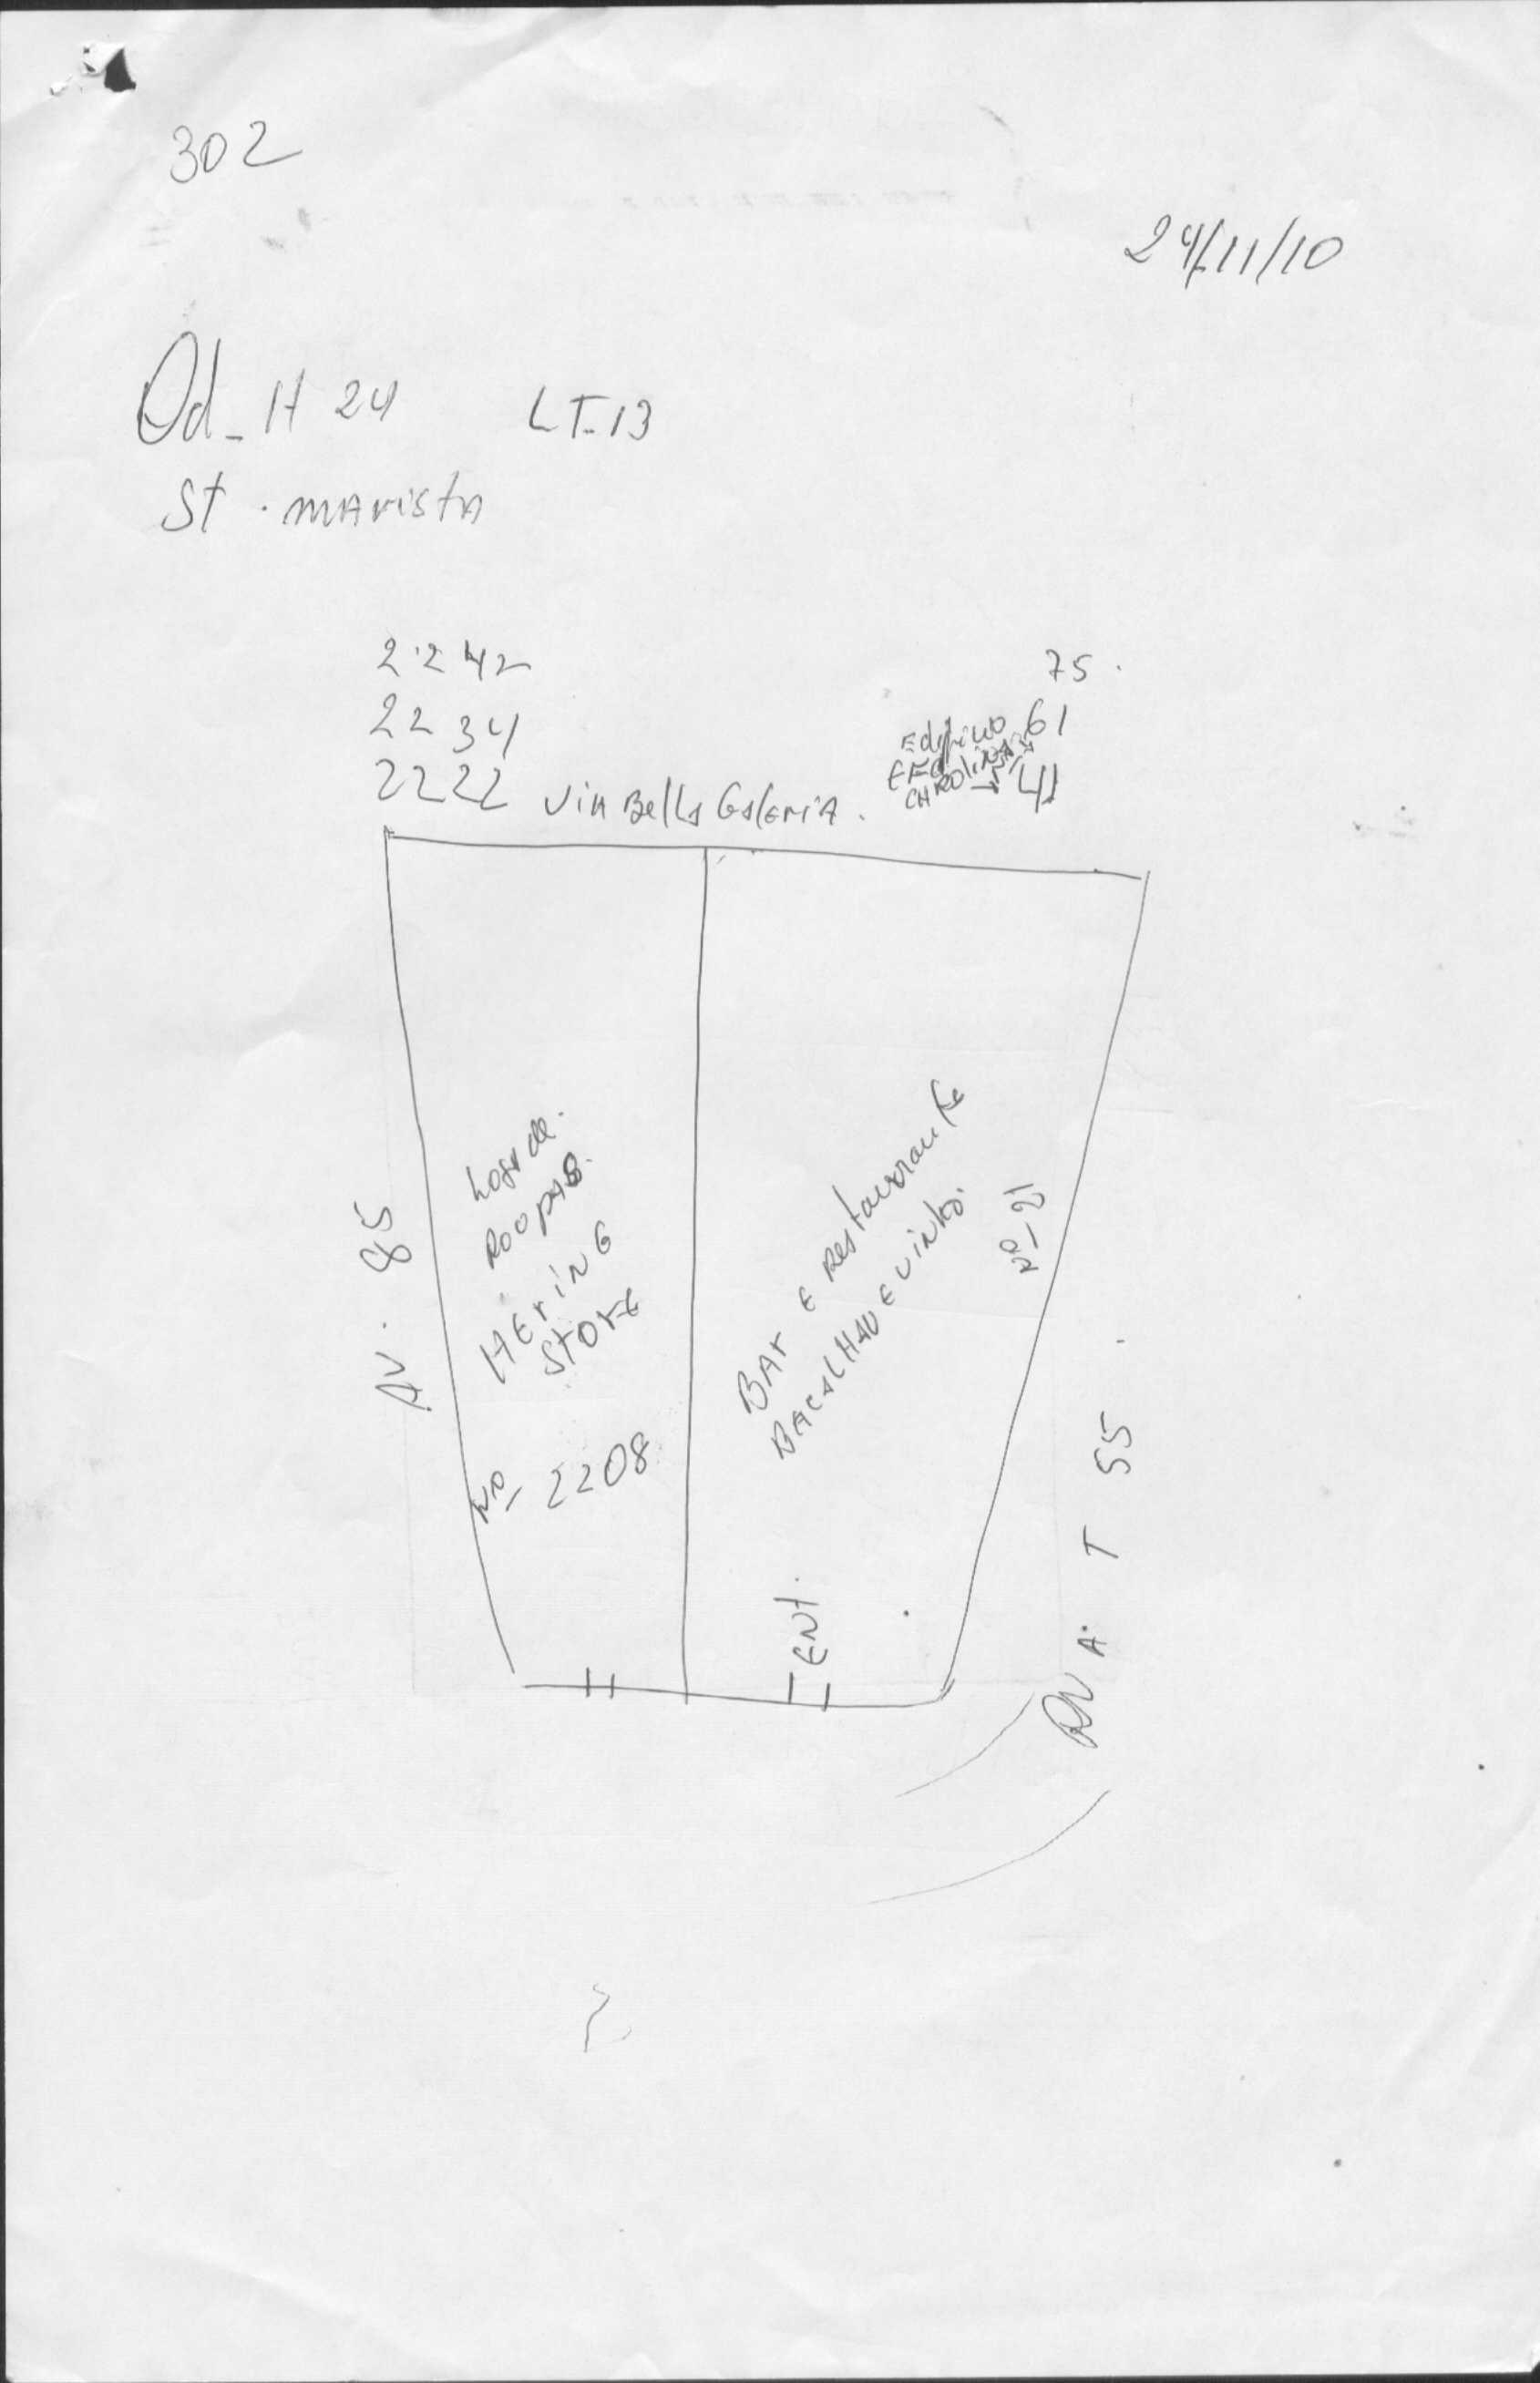 302
24/11/10
Qd_ H 24 LT-13
St. MAristA
2242 75.
2234 Edificio 61
2222 ViA BellA GAleriA. CAROlinA 41
AV. 85
LojA de.
ROUPAS.
HEriNG
StOrE
Nº 2208
BAr E REstaurante
BACALHAU E VINho.
Nº_21
ENt.
RUA T 55.